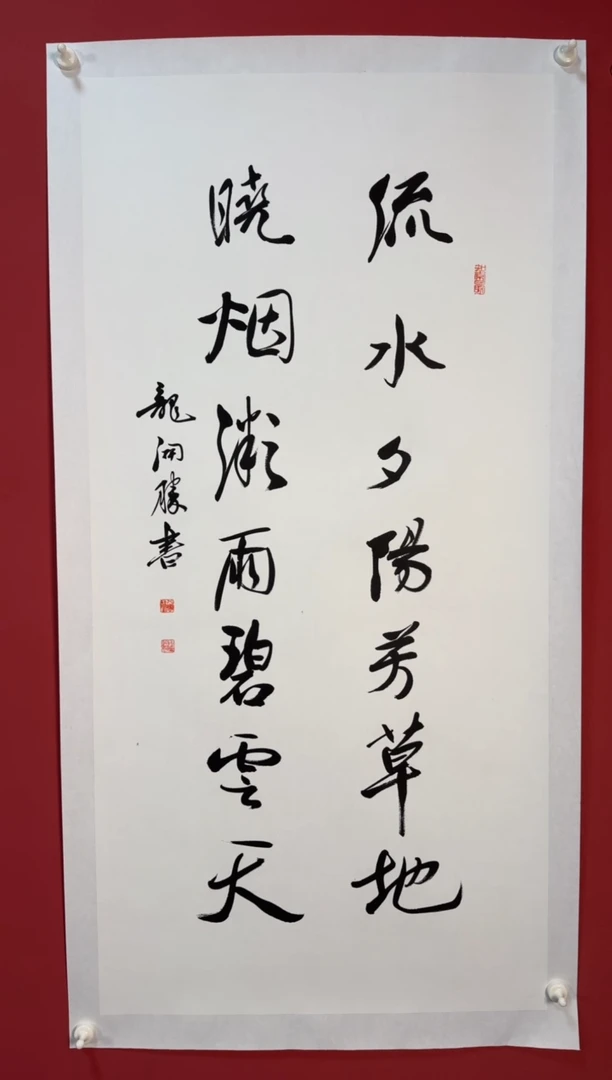 流水夕陽芳草地
曉烟微雨碧雲天
龍開勝書